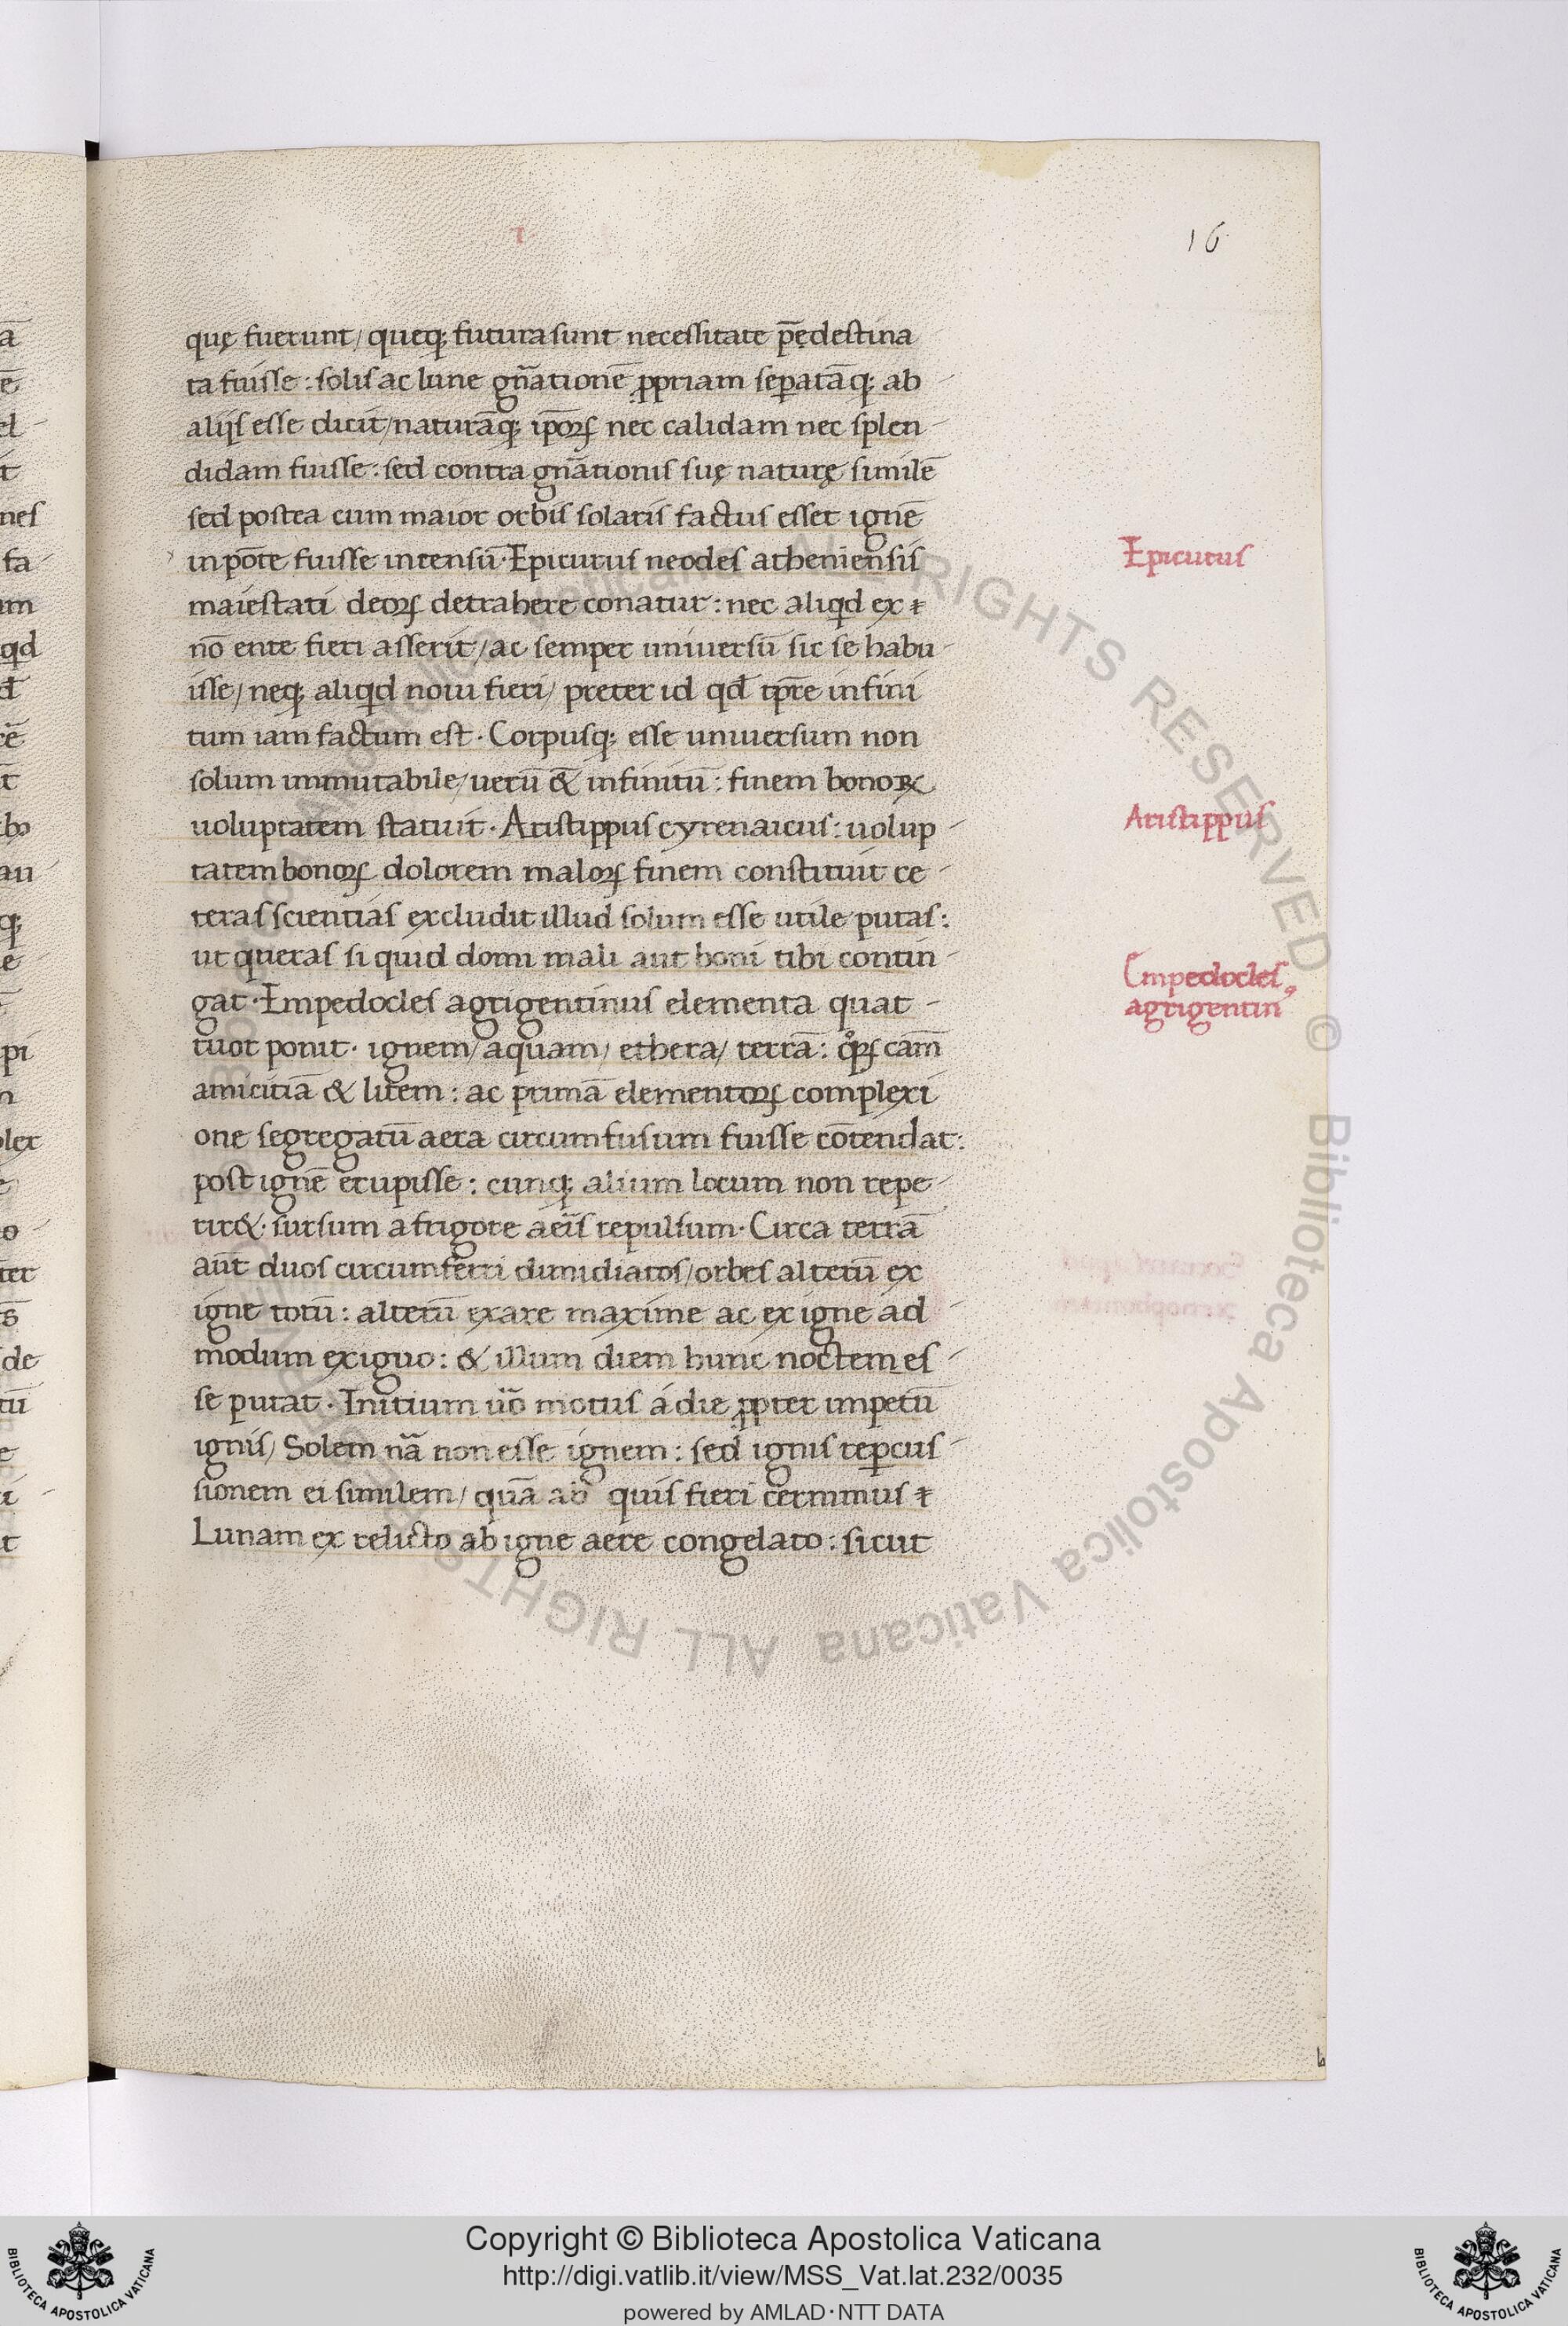 I
16
quę fuerunt/ queq; futura sunt necessitate p̄ędestina
ta fuisse: solis ac lune gn̄ationē ꝓpriam sep̱atāq; ab
alijs esse dicit/ naturāq; ip̄oꝝ nec calidam nec splen-
didam fuisse: sed contra gn̄ationis suę naturę similē
sed postea cum maior orbis solaris factus esset ignē
in pōte fuisse intensū. Epicurus neocles atheniensis
Epicurus
maiestati deoꝝ detrahere conatur: nec aliqd ex
nō ente fieri asserit/ ac semper uniuersū sic se habu-
isse/ neq; aliqd noui fieri/ preter id qd̄ tp̄re infini
tum iam factum est. Corpusq; esse uniuersum non
solum immutabile/ uerū & infinitū: finem bonoꝝ
uoluptatem statuit. Aristippus cyrenaicus: uolup-
Aristippus
tatem bonoꝝ dolorem maloꝝ finem constituit ce-
teras scientias excludit illud solum esse utile putas:
ut queras si quid domi mali aut boni tibi contin-
gat. Empedocles agrigentinus elementa quat-
Empedocles
agrigentinꝰ
tuor ponit. ignem/ aquam/ ethera/ terrā: qͦꝝ cām
amicitiā & litem: ac primā elementoꝝ complexi
one segregatū aera circumfusum fuisse cōtendat:
post ignē erupisse: cunq; alium locum non repe-
rir&. sursum a frigore aeīs repulsum. Circa terrā
aūt duos circumferri dimidiatos/ orbes alterū ex
igne totū: alterū ex are maxime ac ex igne ad-
modum exiguo: & illum diem hunc noctem es-
se putat. Initium ūo motus á die ꝓpter impetū
ignis/ Solem nā non esse ignem: sed ignis reꝑcus-
sionem ei similem/ quā ab quis fieri cernimus
Lunam ex relicto ab igne aere congelato: sicut
Copyright © Biblioteca Apostolica Vaticana
http://digi.vatlib.it/view/MSS_Vat.lat.232/0035
powered by AMLAD·NTT DATA